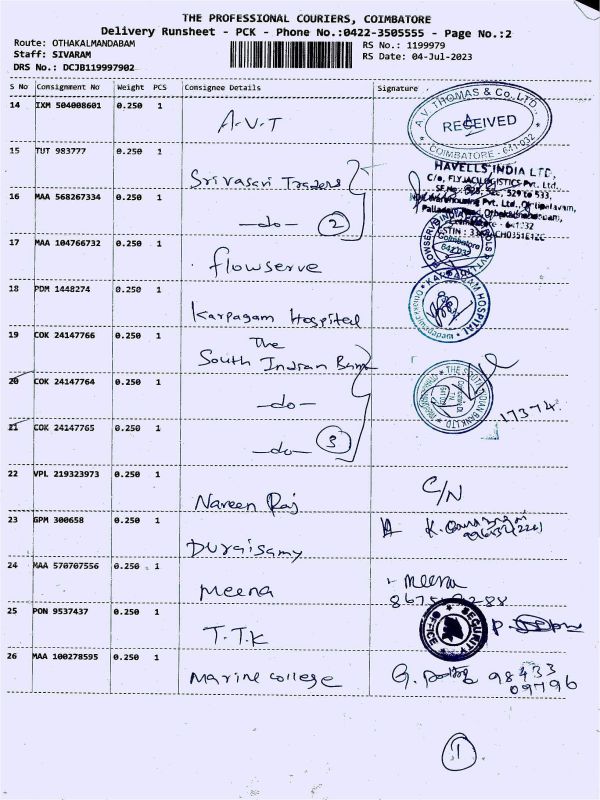 THE PROFESSIONAL COURIERS, COIMBATORE
Delivery Runsheet - PCK - Phone No.:0422-3505555 - Page No.:2
Route: OTHAKALMANDABAM
RS No.: 1199979
Staff: SIVARAM
RS Date: 04-Jul-2023
DRS No.: DCJB119997902
S No Consignment No Weight PCS Consignee Details Signature
14 IXM 504008601 0.250 1 A.V.T
A.V. THOMAS & Co., LTD.,
RECEIVED
COIMBATORE - 641 032
15 TUT 983777 0.250 1 Srivasavi Traders
HAVELLS INDIA LTD.,
16 MAA 568267334 0.250 1 —do— 2
17 MAA 104766732 0.250 1 flowserve
Coimbatore
18 PDM 1448274 0.250 1 Karpagam Hospital
KARPAGAM HOSPITAL
19 COK 24147766 0.250 1 The
South Indian Bank
20 COK 24147764 0.250 1 —do—
THE SOUTH INDIAN BANK LTD
17374.
21 COK 24147765 0.250 1 —do— 3
22 VPL 219323973 0.250 1 Naveen Raj C/N
23 GPM 300658 0.250 1 Duraisamy
24 MAA 570707556 0.250 1 Meena Meena
25 PON 9537437 0.250 1 T.T.K
SECURITY
OFFICE
26 MAA 100278595 0.250 1 Marine College G. 98433
09796
1